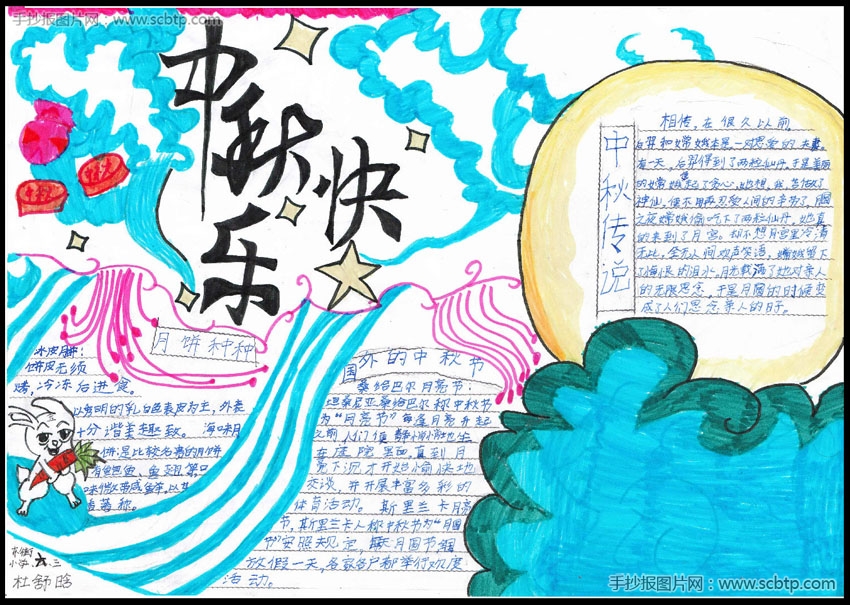 手抄报图片网:www.scbtp.com
中秋快乐
中秋
快乐
中秋传说
相传，在很久以前，
后羿和嫦娥本是一对恩爱的夫妻。
有一天，后羿得到了两粒仙丹，于是美丽
的嫦娥起了贪心，她想，我若做了
神仙，便不用再忍受人间的辛劳了，月圆
之夜嫦娥偷听下了两粒仙丹，她真
的来到了月宫。却不想月宫里冷清
无比，全无人间欢声笑语，嫦娥留下
了悔恨的泪水，月光载满了她对亲人
的无限思念，于是月圆的时候变
成了人们思念亲人的日子。
月饼种种
冰皮月饼：
饼皮无须
烤，冷冻后进食。
以透明的乳白色表皮为主，外表
十分谐美趣致。海味月
饼是比较名贵的月饼
有鲍鱼、鱼翅等，口
味微带咸鲜，以其
著称。
国外的中秋节
桑给巴尔月亮节：
坦桑尼亚桑给巴尔称中秋节
为“月亮节”每逢月亮升起
之前，人们便静悄悄地坐
在庭院里面，直到月
亮下沉才开始愉快地
交谈，并开展丰富多彩的
体育活动。斯里兰卡月亮
节，斯里兰卡人称中秋节为“月圆
节”按照规定，每月圆节调
放假一天，各家各户都举行欢度
活动。
东街
小学 六.三
杜舒晗
手抄报图片网:www.scbtp.com